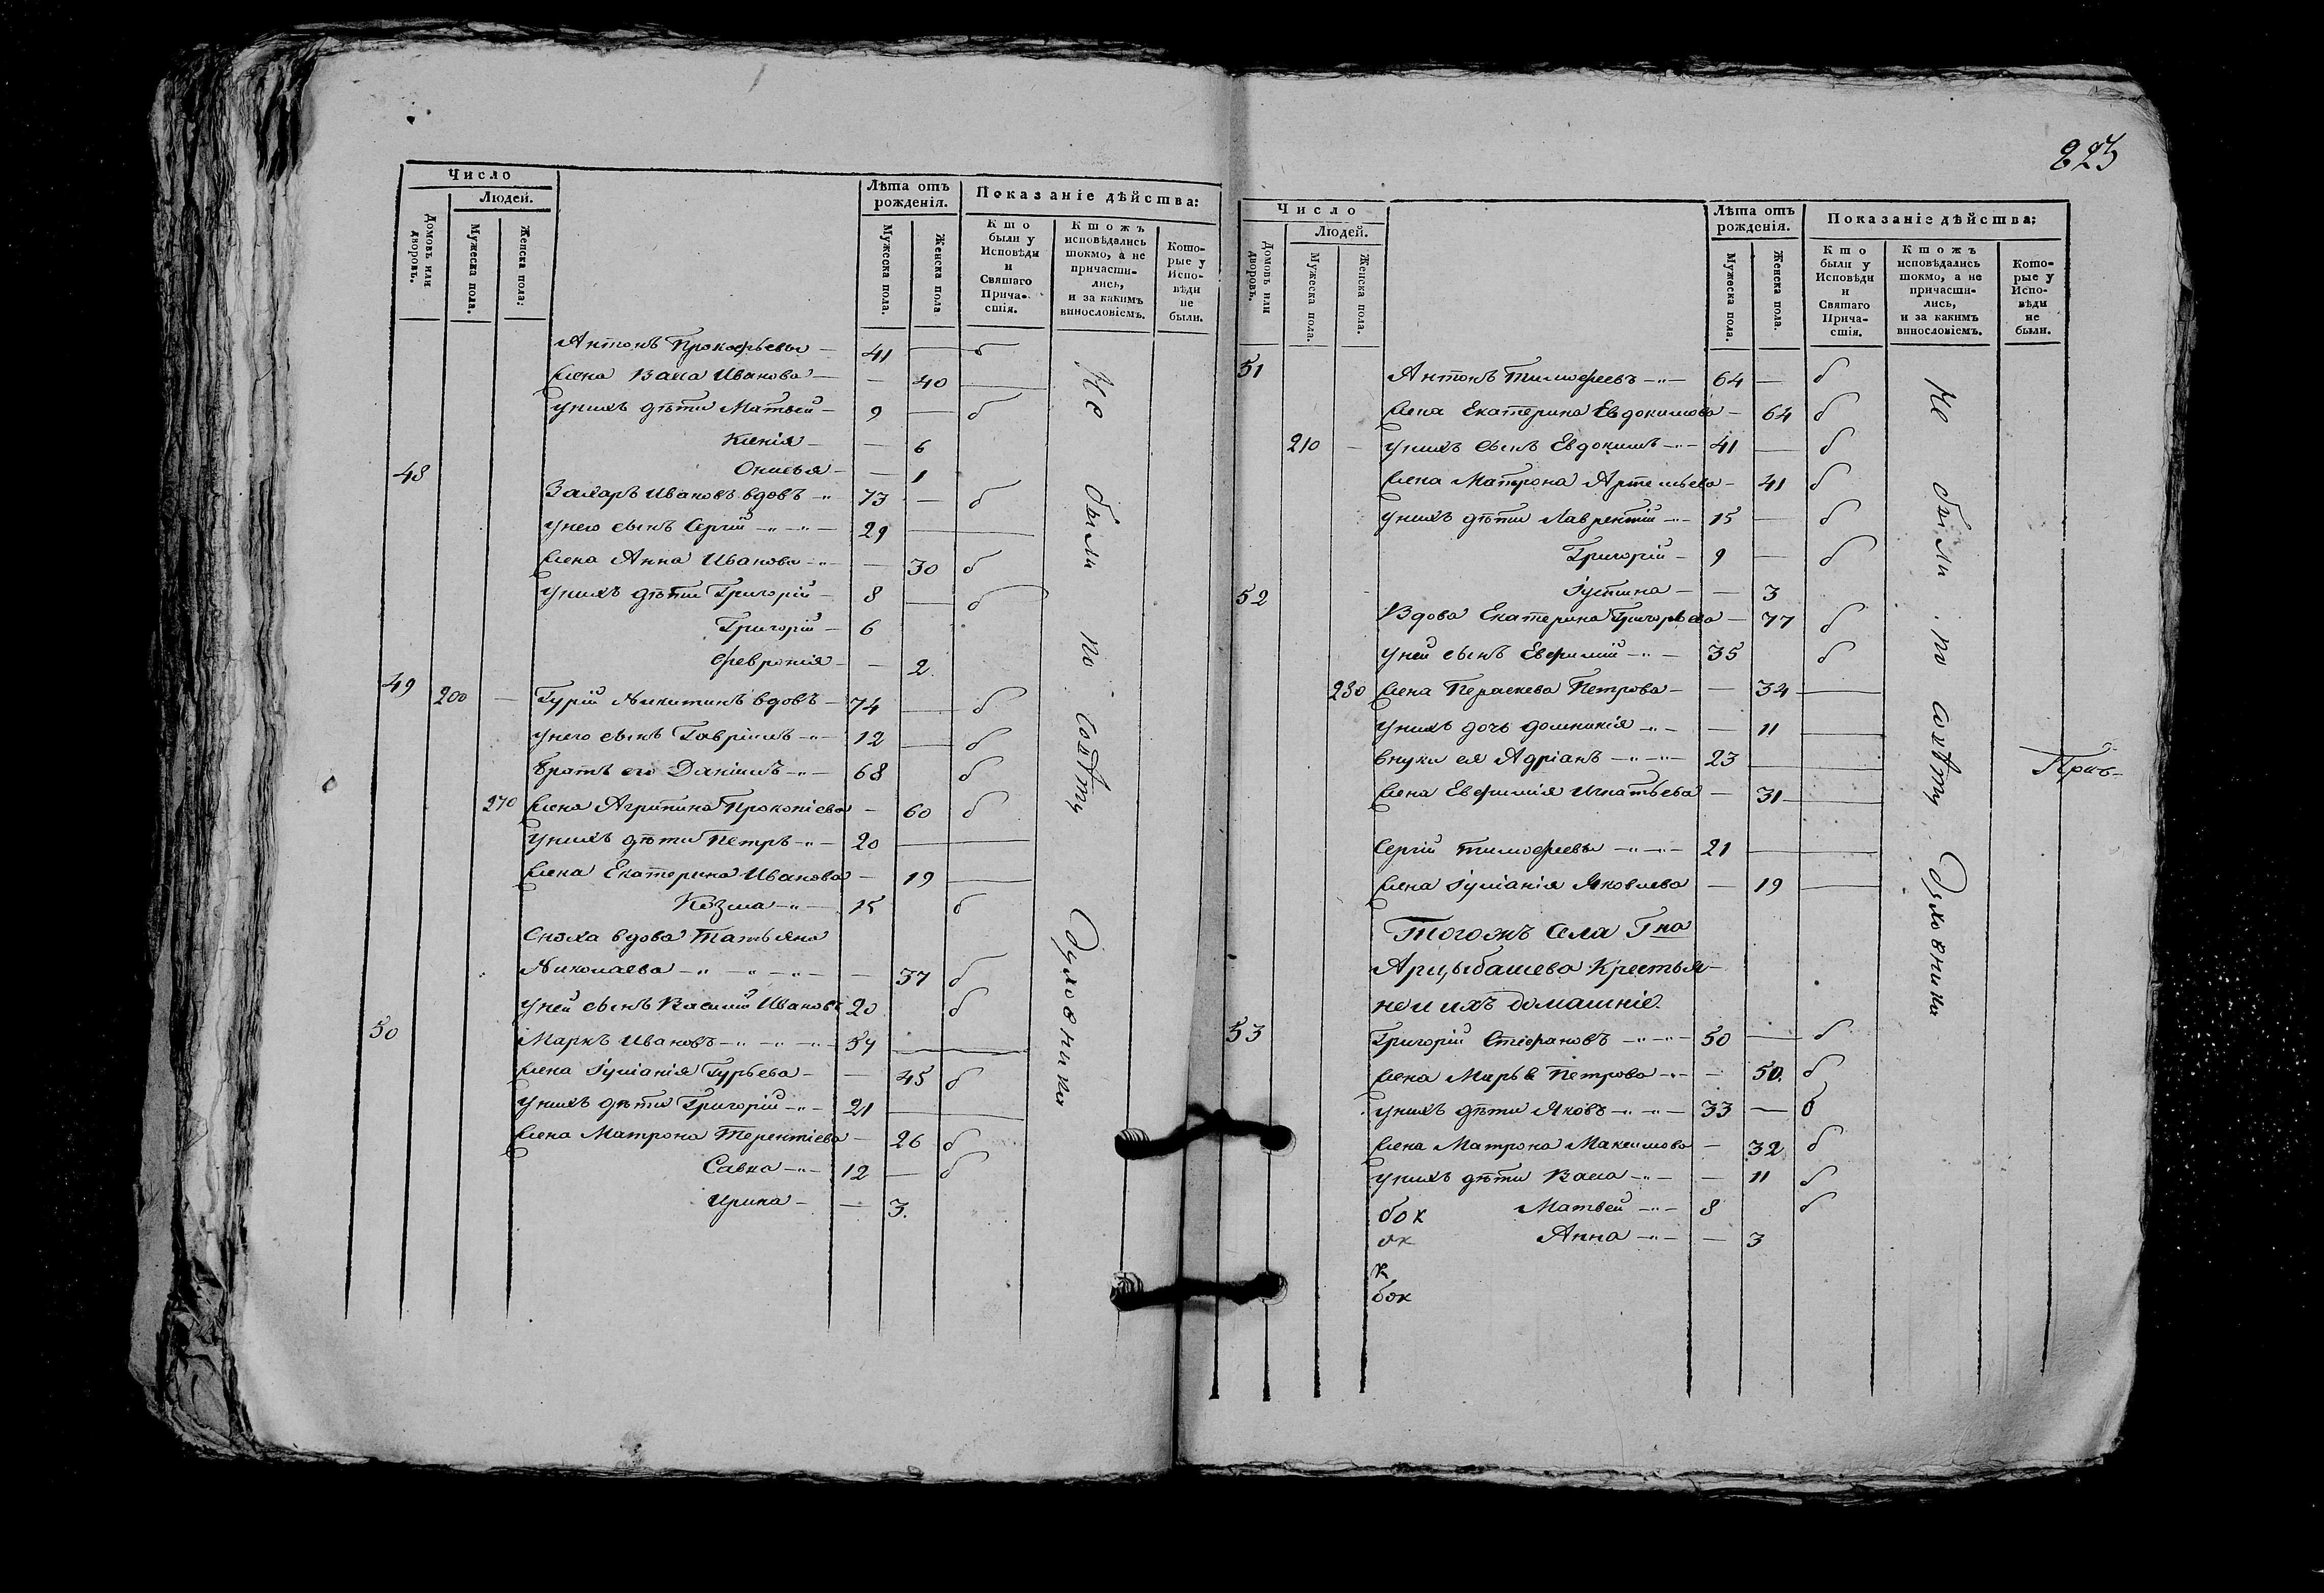 Число
Людей.
Домовъ или дворовъ.
Мужеска пола.
Женска пола:
Лѣта отъ рожденія.
Мужеска пола.
Женска пола
Показаніе дѣйства:
Кто были у Исповѣди и Святаго Причастія.
Ктожъ исповѣдались токмо, а не причастились, и за какимъ винословіемъ.
Которые у Исповѣди не были.
Антонъ Прокофьевъ — 41 — б
Жена Васа Иванова — — 40 —
Унихъ дѣти Матвей — 9 — б
Ксенія — — 6
Онисья — — 1
48
Захаръ Ивановъ вдовъ 73 — б
Унего сынъ Сергій 29 —
Жена Анна Иванова — 30 б
Унихъ дѣти Григорій — 8 — б
Григорій — 6
Февронія — — 2
49 200 — Гурій Никитинъ вдовъ — 74 — б
Унего сынъ Гавріилъ 12 — б
Братъ его Даніилъ 68 б
270 Жена Агрипина Прокопіева — 60 б
Унихъ дѣти Петръ 20 —
Жена Екатерина Иванова — 19 —
Козма 15 б
Сноха вдова Татьяна
Николаева — 37 б
Уней сынъ Василій Ивановъ 20 б
50
Маркъ Ивановъ 54 —
Жена Іуліанія Гурьева — — 45 б
Унихъ дѣти Григорій 21 —
Жена Матрона Терентіева — 26 б
Савва 12 — б
Ирина — — 3.
Не были по совѣту Духовника
223
Число
Людей.
Домовъ или дворовъ.
Мужеска пола.
Женска пола.
Лѣта отъ рожденія.
Мужеска пола.
Женска пола.
Показаніе дѣйства:
Кто были у Исповѣди и Святаго Причастія.
Ктожъ исповѣдались токмо, а не причастились, и за какимъ винословіемъ.
Которые у Исповѣди не были.
51
Антонъ Тимофеевъ 64 — б
Жена Екатерина Евдокимова — 64 б
210 — Унихъ сынъ Евдокимъ 41 — б
Жена Матрона Артемьева — 41 б
Унихъ дѣти Лаврентій 15 — б
Григорій — 9 — б
Іустина — — 3
52
Вдова Екатерина Григорьева — 77 б
Уней сынъ Евфимій 35 б
280 Жена Параскева Петрова — — 34 —
Унихъ дочь Домникія — 11 —
Внуки ея Адріанъ 23 —
Жена Евфимія Игнатьева — 31 —
Сергій Тимофеевъ 21 —
Жена Іуліанія Яковлева — 19 —
Тогожъ Села Гна
Арцыбашева Крестья-
не и ихъ домашніе.
53
Григорій Стефановъ 50 — б
Жена Марья Петрова — 50. б
Унихъ дѣти Яковъ 33 — б
Жена Матрона Максимова — 32 б
Унихъ дѣти Васа — 11 б
бок Матвей 8 б
ок Анна — 3
к
бок
Не были по совѣту Духовника